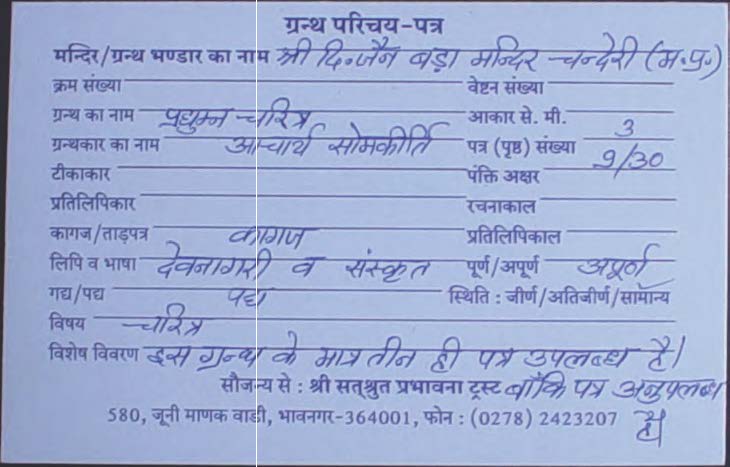 ग्रन्थ परिचय-पत्र
मन्दिर/ग्रन्थ भण्डार का नाम श्री दि. जैन बड़ा मन्दिर चन्देरी (म.प्र.)
क्रम संख्या वेष्टन संख्या
ग्रन्थ का नाम प्रद्युम्न चरित्र आकार से. मी.
ग्रन्थकार का नाम आचार्य सोमकीर्ति पत्र (पृष्ठ) संख्या 3
टीकाकार पंक्ति अक्षर 9/30
प्रतिलिपिकार रचनाकाल
कागज/ताड़पत्र कागज प्रतिलिपिकाल
लिपि व भाषा देवनागरी व संस्कृत पूर्ण/अपूर्ण अपूर्ण
गद्य/पद्य पद्य स्थिति : जीर्ण/अतिजीर्ण/सामान्य
विषय चरित्र
विशेष विवरण इस ग्रन्थ के मात्र तीन ही पत्र उपलब्ध है।
सौजन्य से : श्री सत्श्रुत प्रभावना ट्रस्ट बाँकि पत्र अनुपलब्ध
580, जूनी माणक वाडी, भावनगर-364001, फोन : (0278) 2423207 है।